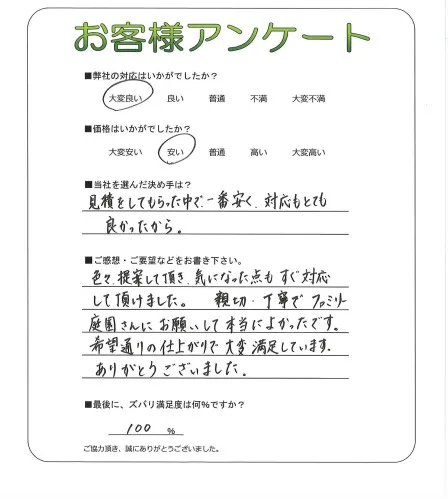 お客様アンケート
■弊社の対応はいかがでしたか?
大変良い 良い 普通 不満 大変不満
■価格はいかがでしたか?
大変安い 安い 普通 高い 大変高い
■当社を選んだ決め手は?
見積をしてもらった中で一番安く、対応もとても
良かったから。
■ご感想・ご要望などをお書き下さい。
色々、提案して頂き、気になった点もすぐ対応
して頂けました。 親切・丁寧でファミリー
庭園さんにお願いして本当によかったです。
希望通りの仕上がりで大変満足しています。
ありがとうございました。
■最後に、ズバリ満足度は何%ですか?
100 %
ご協力頂き、誠にありがとうございました。